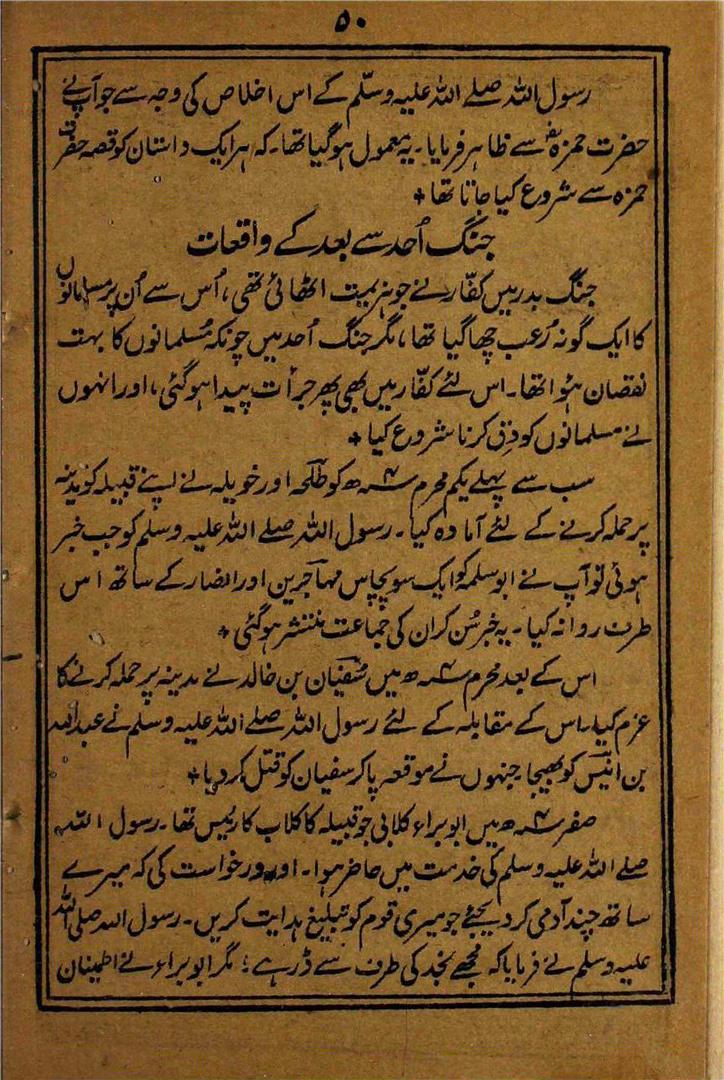 ۵۰
رسول اللہ صلے اللہ علیہ وسلّم کے اس اخلاص کی وجہ سے جو آپ نے
حضرت حمزہؓ سے ظاہر فرمایا۔ یہ معمول ہوگیا تھا۔ کہ ہر ایک داستان کو قصہ حضرت
حمزہ سے شروع کیا جاتا تھا +
جنگ اُحد سے بعد کے واقعات
جنگ بدر میں کفّار نے جو ہزیمت اٹھائی تھی، اُس سے اُن پر مسلمانوں
کا ایک گونہ رُعب چھا گیا تھا، مگر جنگ اُحد میں چونکہ مُسلمانوں کا بہت
نقصان ہؤا تھا۔ اس لئے کفّار میں بھی پھر جرأت پیدا ہوگئی، اور انہوں
نے مسلمانوں کو دِق کرنا شروع کیا +
سب سے پہلے یکم محرم ۴ ؁ھ کو طلحہ اور خویلہ نے اپنے قبیلہ کو مدینہ
پر حملہ کرنے کے لئے آمادہ کیا۔ رسول اللہ صلے اللہ علیہ وسلم کو جب خبر
ہوئی تو آپ نے ابو سلمہ کو ایک سو پچاس مہاجرین اور انصار کے ساتھ اس
طرف روانہ کیا۔ یہ خبر سُن کر ان کی جماعت منتشر ہوگئی +
اس کے بعد محرم ۴ ؁ھ میں سُفیان بن خالد نے مدینہ پر حملہ کرنے کا
عزم کیا۔ اس کے مقابلہ کے لئے رسول اللہ صلے اللہ علیہ وسلم نے عبداللہ
بن انیس کو بھیجا جنہوں نے موقعہ پا کر سفیان کو قتل کر دیا +
صفر ۴ ؁ھ میں ابو براء کلابی جو قبیلہ کلاب کا رئیس تھا۔ رسول اللہ
صلے اللہ علیہ وسلم کی خدمت میں حاضر ہوا۔ اور درخواست کی کہ میرے
ساتھ چند آدمی کر دیجئے جو میری قوم کو تبلیغ ہدایت کریں۔ رسول اللہ صلی اللہ
علیہ وسلم نے فرمایا کہ مجھے نجد کی طرف سے ڈر ہے؛ مگر ابو براء نے اطمینان